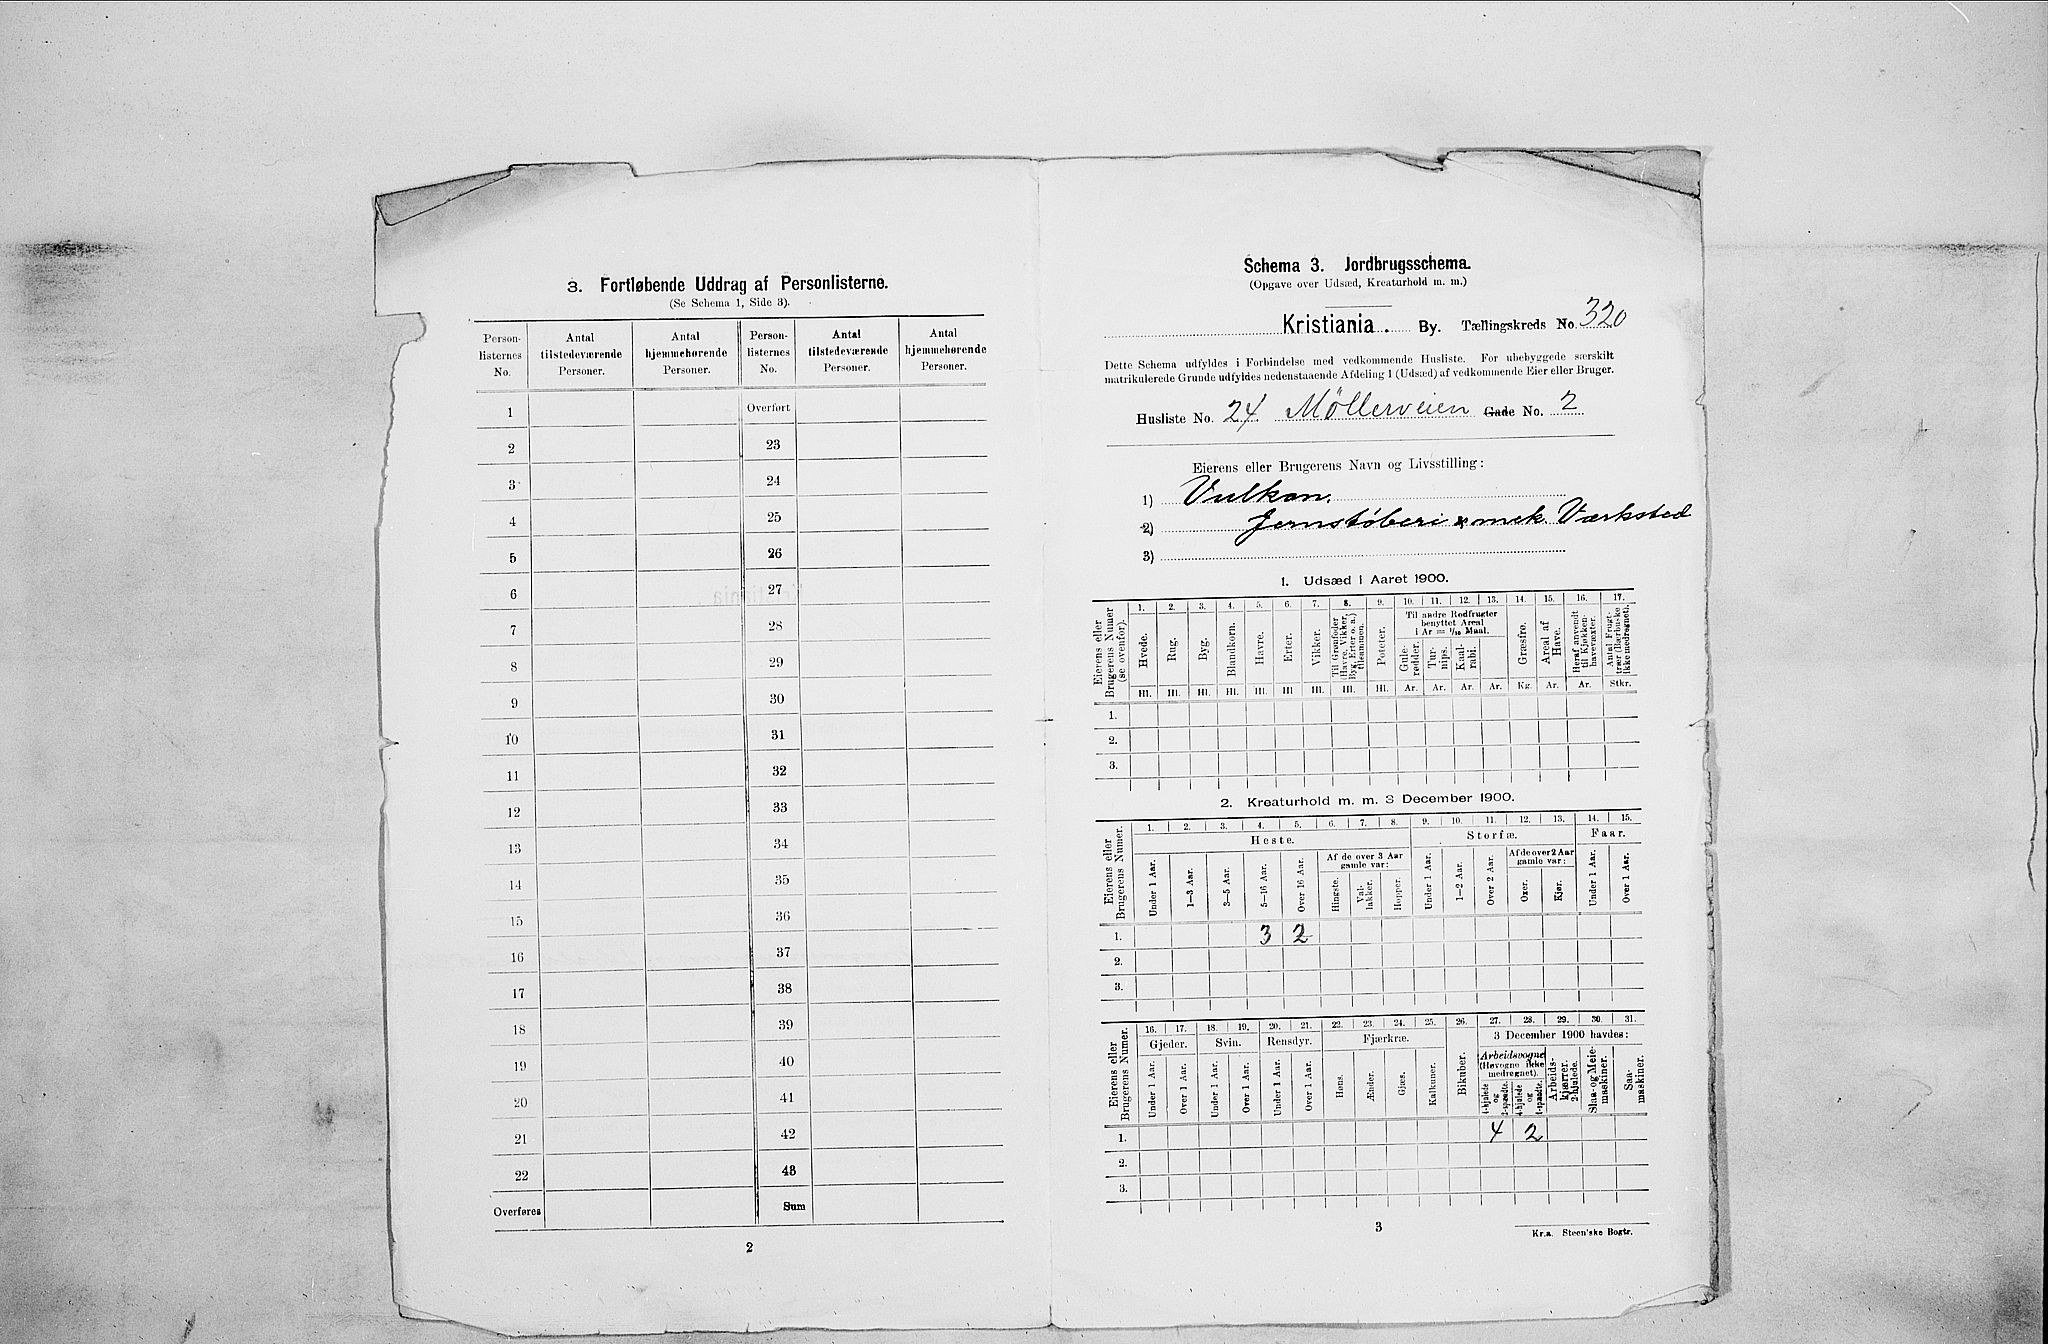 3. Fortløbende Uddrag af Personlisterne.
(Se Schema 1, Side 3).
Person-listernes No. | Antal tilstedeværende Personer. | Antal hjemmehørende Personer. | Person-listernes No. | Antal tilstedeværende Personer. | Antal hjemmehørende Personer.
1 Overført
2 23
3 24
4 25
5 26
6 27
7 28
8 29
9 30
10 31
11 32
12 33
13 34
14 35
15 36
16 37
17 38
18 39
19 40
20 41
21 42
22 43
Overføres Sum
2
Schema 3. Jordbrugsschema.
(Opgave over Udsæd, Kreaturhold m. m.)
Kristiania. By. Tællingskreds No. 320
Dette Schema udfyldes i Forbindelse med vedkommende Husliste. For ubebyggede særskilt
matrikulerede Grunde udfyldes nedenstaaende Afdeling 1 (Udsæd) af vedkommende Eier eller Bruger.
Husliste No. 24 Möllerveien Gade No. 2
Eierens eller Brugerens Navn og Livsstilling:
1) Vulkan.
2) Jernstøberi & mek. Værksted
3)
1. Udsæd i Aaret 1900.
Eierens eller Brugerens Numer (se ovenfor).
1. 2. 3. 4. 5. 6. 7. 8. 9. 10. 11. 12. 13. 14. 15. 16. 17.
Til andre Rodfrugter benyttet Areal i Ar = 1/10 Maal.
Hvede. Rug. Byg. Blandkorn. Havre. Erter. Vikker. Til Grønfoder (Havre, Vikker, Byg, Erter o. a.) tilsammen. Poteter. Gule-rødder. Tur-nips. Kaal-rabi. Græsfrø. Areal af Have. Heraf anvendt til Kjøkken-havevæxter. Antal Frugt-trær (Bærbuske ikke medregnet).
Hl. Hl. Hl. Hl. Hl. Hl. Hl. Hl. Hl. Ar. Ar. Ar. Ar. Kg. Ar. Ar. Stkr.
1.
2.
3.
2. Kreaturhold m. m. 3 December 1900.
Eierens eller Brugerens Numer.
1. 2. 3. 4. 5. 6. 7. 8. 9. 10. 11. 12. 13. 14. 15.
Heste. Storfæ. Faar.
Af de over 3 Aar gamle var: Af de over 2 Aar gamle var:
Under 1 Aar. 1—3 Aar. 3—5 Aar. 5—16 Aar. Over 16 Aar. Hingste. Val-lakker. Hopper. Under 1 Aar. 1—2 Aar. Over 2 Aar. Oxer. Kjør. Under 1 Aar. Over 1 Aar.
1. 3 2
2.
3.
Eierens eller Brugerens Numer.
16. 17. 18. 19. 20. 21. 22. 23. 24. 25. 26. 27. 28. 29. 30. 31.
Gjeder. Svin. Rensdyr. Fjærkræ. Bikuber. 3 December 1900 havdes:
Arbeidsvogne (Høvogne ikke medregnet).
Under 1 Aar. Over 1 Aar. Under 1 Aar. Over 1 Aar. Under 1 Aar. Over 1 Aar. Høns. Ænder. Gjæs. Kalkuner. 4-hjulede og 2-spændte. 4-hjulede og 1-spændte. Arbeids-kjærrer 2-hjulede. Slaa- og Meie-maskiner. Saa-maskiner.
1. 4 2
2.
3.
3
Kr.a. Steen'ske Bogtr.